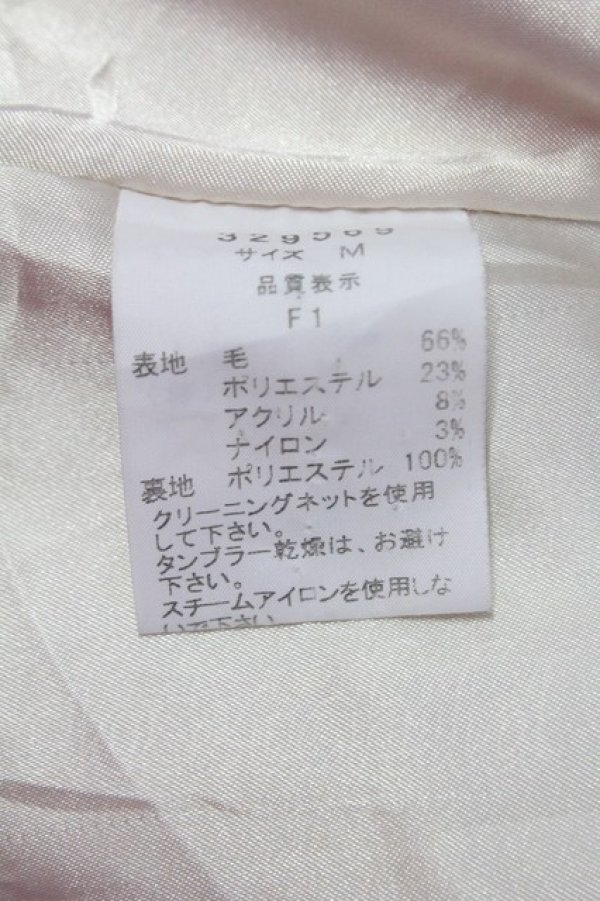 329569
サイズ M
品質表示
F1
表地 毛 66%
ポリエステル 23%
アクリル 8%
ナイロン 3%
裏地 ポリエステル 100%
クリーニングネットを使用
して下さい。
タンブラー乾燥は、お避け
下さい。
スチームアイロンを使用しな
いで下さい